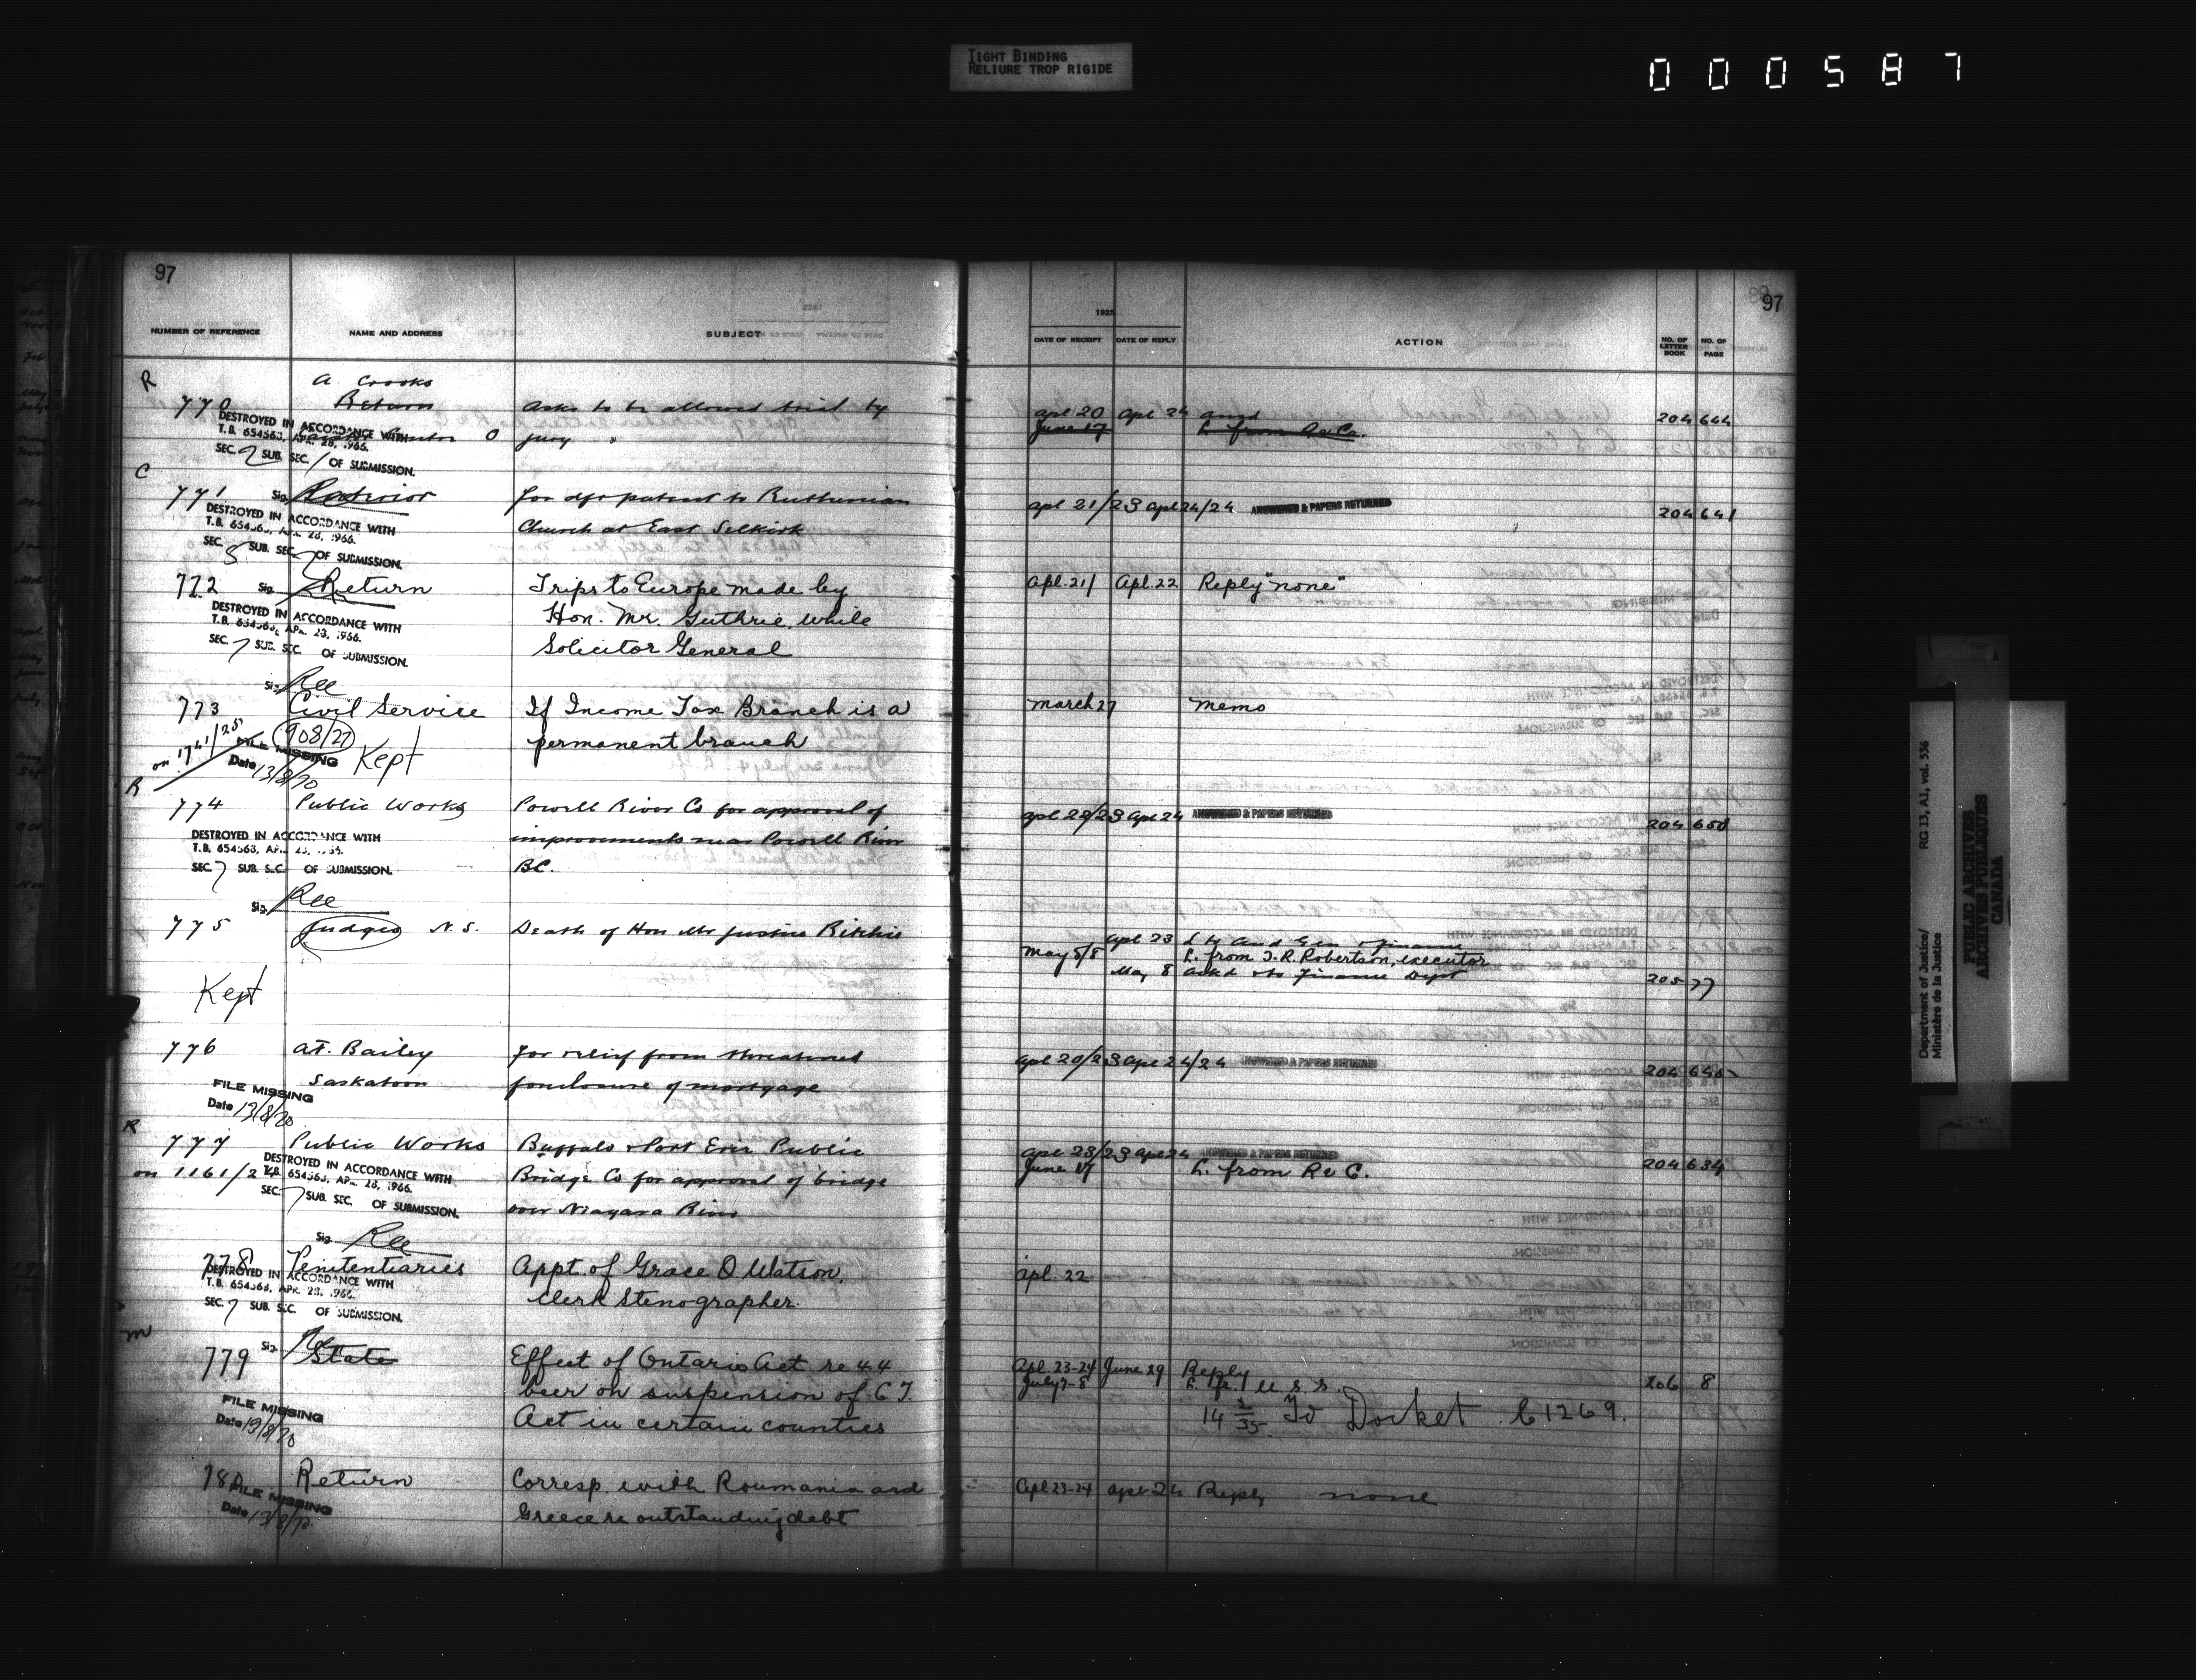 TIGHT BINDING
RELIURE TROP RIGIDE
000587
97
NUMBER OF REFERENCE NAME AND ADDRESS SUBJECT
R
A. Crooks
770 Return Asks to be allowed trial by
DESTROYED IN ACCORDANCE WITH
T.B. 654563, APR. 28, 1966.
O jury "
SEC. 2 SUB. SEC. 1 OF SUBMISSION.
C
771 Sig. Interior for dft patent to Ruthenian
DESTROYED IN ACCORDANCE WITH
T.B. 654563, APR. 28, 1966.
Church at East Selkirk
SEC. SUB. SEC. OF SUBMISSION.
772 Sig. Return Trips to Europe made by
DESTROYED IN ACCORDANCE WITH
T.B. 654563, APR. 28, 1966.
Hon. Mr. Guthrie, while
SEC. 7 SUB. SEC. OF SUBMISSION.
Solicitor General
Sig. Ree
773 Civil Service If Income Tax Branch is a
on 1741/25 908/27 permanent branch
FILE MISSING
Date 13/8/70
Kept
R
774 Public Works Powell River Co for approval of
DESTROYED IN ACCORDANCE WITH
T.B. 654563, APR. 28, 1966.
improvements near Powell River
SEC. 7 SUB. SEC. OF SUBMISSION.
BC.
Sig. Ree
775 Judges N.S. Death of Hon Mr Justice Ritchie
Kept
776 A.T. Bailey for relief from threatened
Saskatoon foreclosure of mortgage
FILE MISSING
Date 13/8/70
R
777 Public Works Buffalo & Fort Erie Public
on 1161/24 Bridge Co for approval of bridge
DESTROYED IN ACCORDANCE WITH
T.B. 654563, APR. 28, 1966.
SEC. 7 SUB. SEC. OF SUBMISSION.
over Niagara River
Sig. Ree
778 Penitentiaries Appt. of Grace O. Watson,
DESTROYED IN ACCORDANCE WITH
T.B. 654563, APR. 28, 1966.
Clerk Stenographer.
SEC. 7 SUB. SEC. OF SUBMISSION.
m
779 Sig. State Effect of Ontario Act re 4.4
beer on suspension of C.T.
FILE MISSING
Date 13/8/70
Act in certain counties
780 Return Corresp. with Roumania and
FILE MISSING
Date 13/8/70
Greece re outstanding debt
97
1925
DATE OF RECEIPT DATE OF REPLY ACTION NO. OF LETTER BOOK NO. OF PAGE
Apl 20 Apl 24 Ansd 204 644
June 17 L. from R & Co.
Apl 21/23 Apl 24/24 ANSWERED & PAPERS RETURNED 204 641
Apl. 21/ Apl. 22 Reply "none"
March 27 Memo
Apl 22/23 Apl 24 ANSWERED & PAPERS RETURNED 204 650
Apl 23 L to Aud Gen & Finance
May 5/8 L. from T.R. Robertson, executor
May 8 Ackd & to Finance Dept 205 77
Apl 20/23 Apl 24/24 ANSWERED & PAPERS RETURNED 204 645
Apl 23/23 Apl 24 ANSWERED & PAPERS RETURNED 204 634
June 17 L. from R & C.
Apl. 22
Apl. 23-24 June 29 Reply 206 8
July 7-8 L. fr. U S S.
14 2/35 To Docket C1269.
Apl 23-24 Apl-24 Reply none
Department of Justice/
Ministère de la Justice
RG 13, A1, vol. 536
PUBLIC ARCHIVES
ARCHIVES PUBLIQUES
CANADA